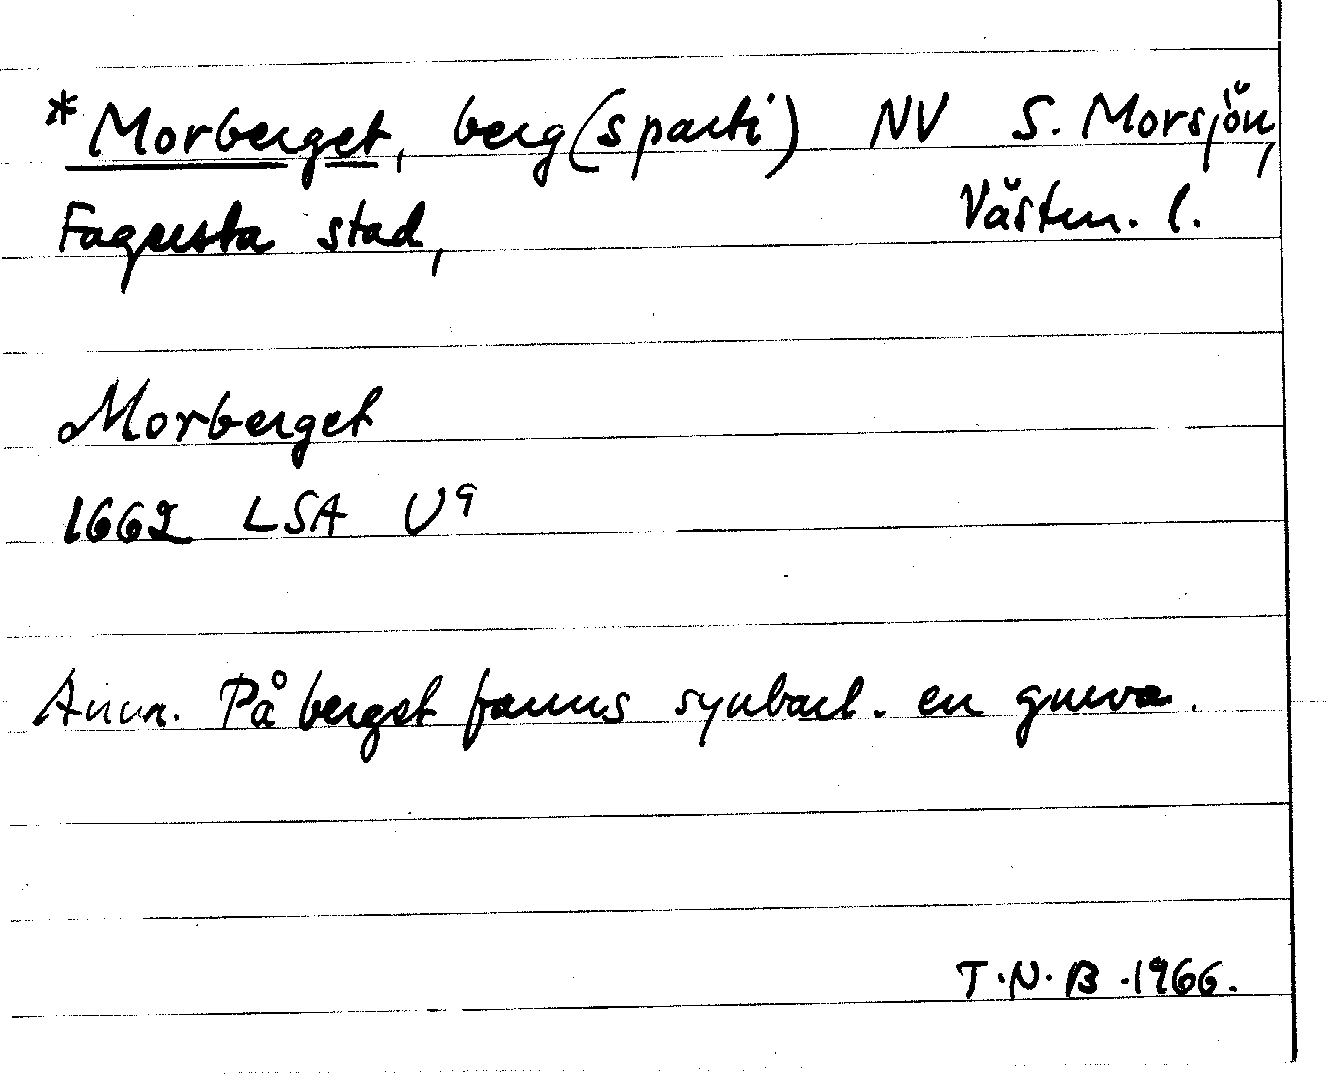 *Morberget, berg(sparti) NV S. Morsjön,
Fagersta stad, Västm. l.
Morberget
1662 LSA U9
Anm. På berget fanns synbarl. en gruva.
T.N.B. 1966.